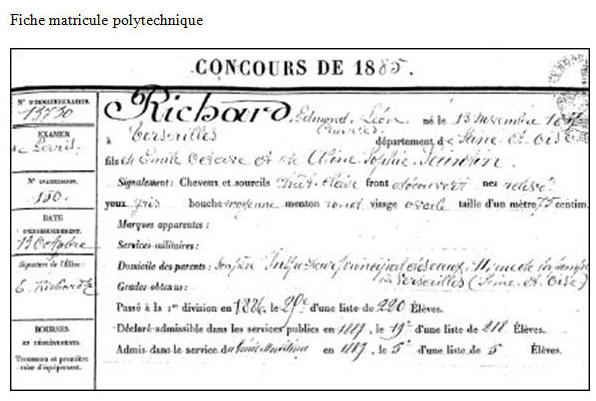 Fiche matricule polytechnique
CONCOURS DE 1885.
N° D'IMMATRICULATION
13730
EXAMEN
de Paris
N° D'ADMISSION
180
DATE
13 Octobre
Signature de l'Élève:
E. Richard
BOURSES
ET DÉGRÈVEMENTS.
Trousseau et première
mise d'équipement.
Richard, Edmond Léon né le 13 novembre
(Charles)
à Versailles département de Seine et Oise
fils de Émile et de Sophie
Signalement: Cheveux et sourcils Chat. Clairs front découvert nez relevé
yeux gris bouche moyenne menton rond visage ovale taille d'un mètre 75 centim.
Marques apparentes:
Services militaires:
Domicile des parents: son père Inspecteur principal des eaux,
à Versailles (Seine et Oise)
Grades obtenus:
Passé à la 1re division en 1886, le 29e d'une liste de 220 Élèves.
Déclaré admissible dans les services publics en 1887, le 19e d'une liste de 218 Élèves.
Admis dans le service du Génie Maritime en 1887, le 5e d'une liste de 5 Élèves.